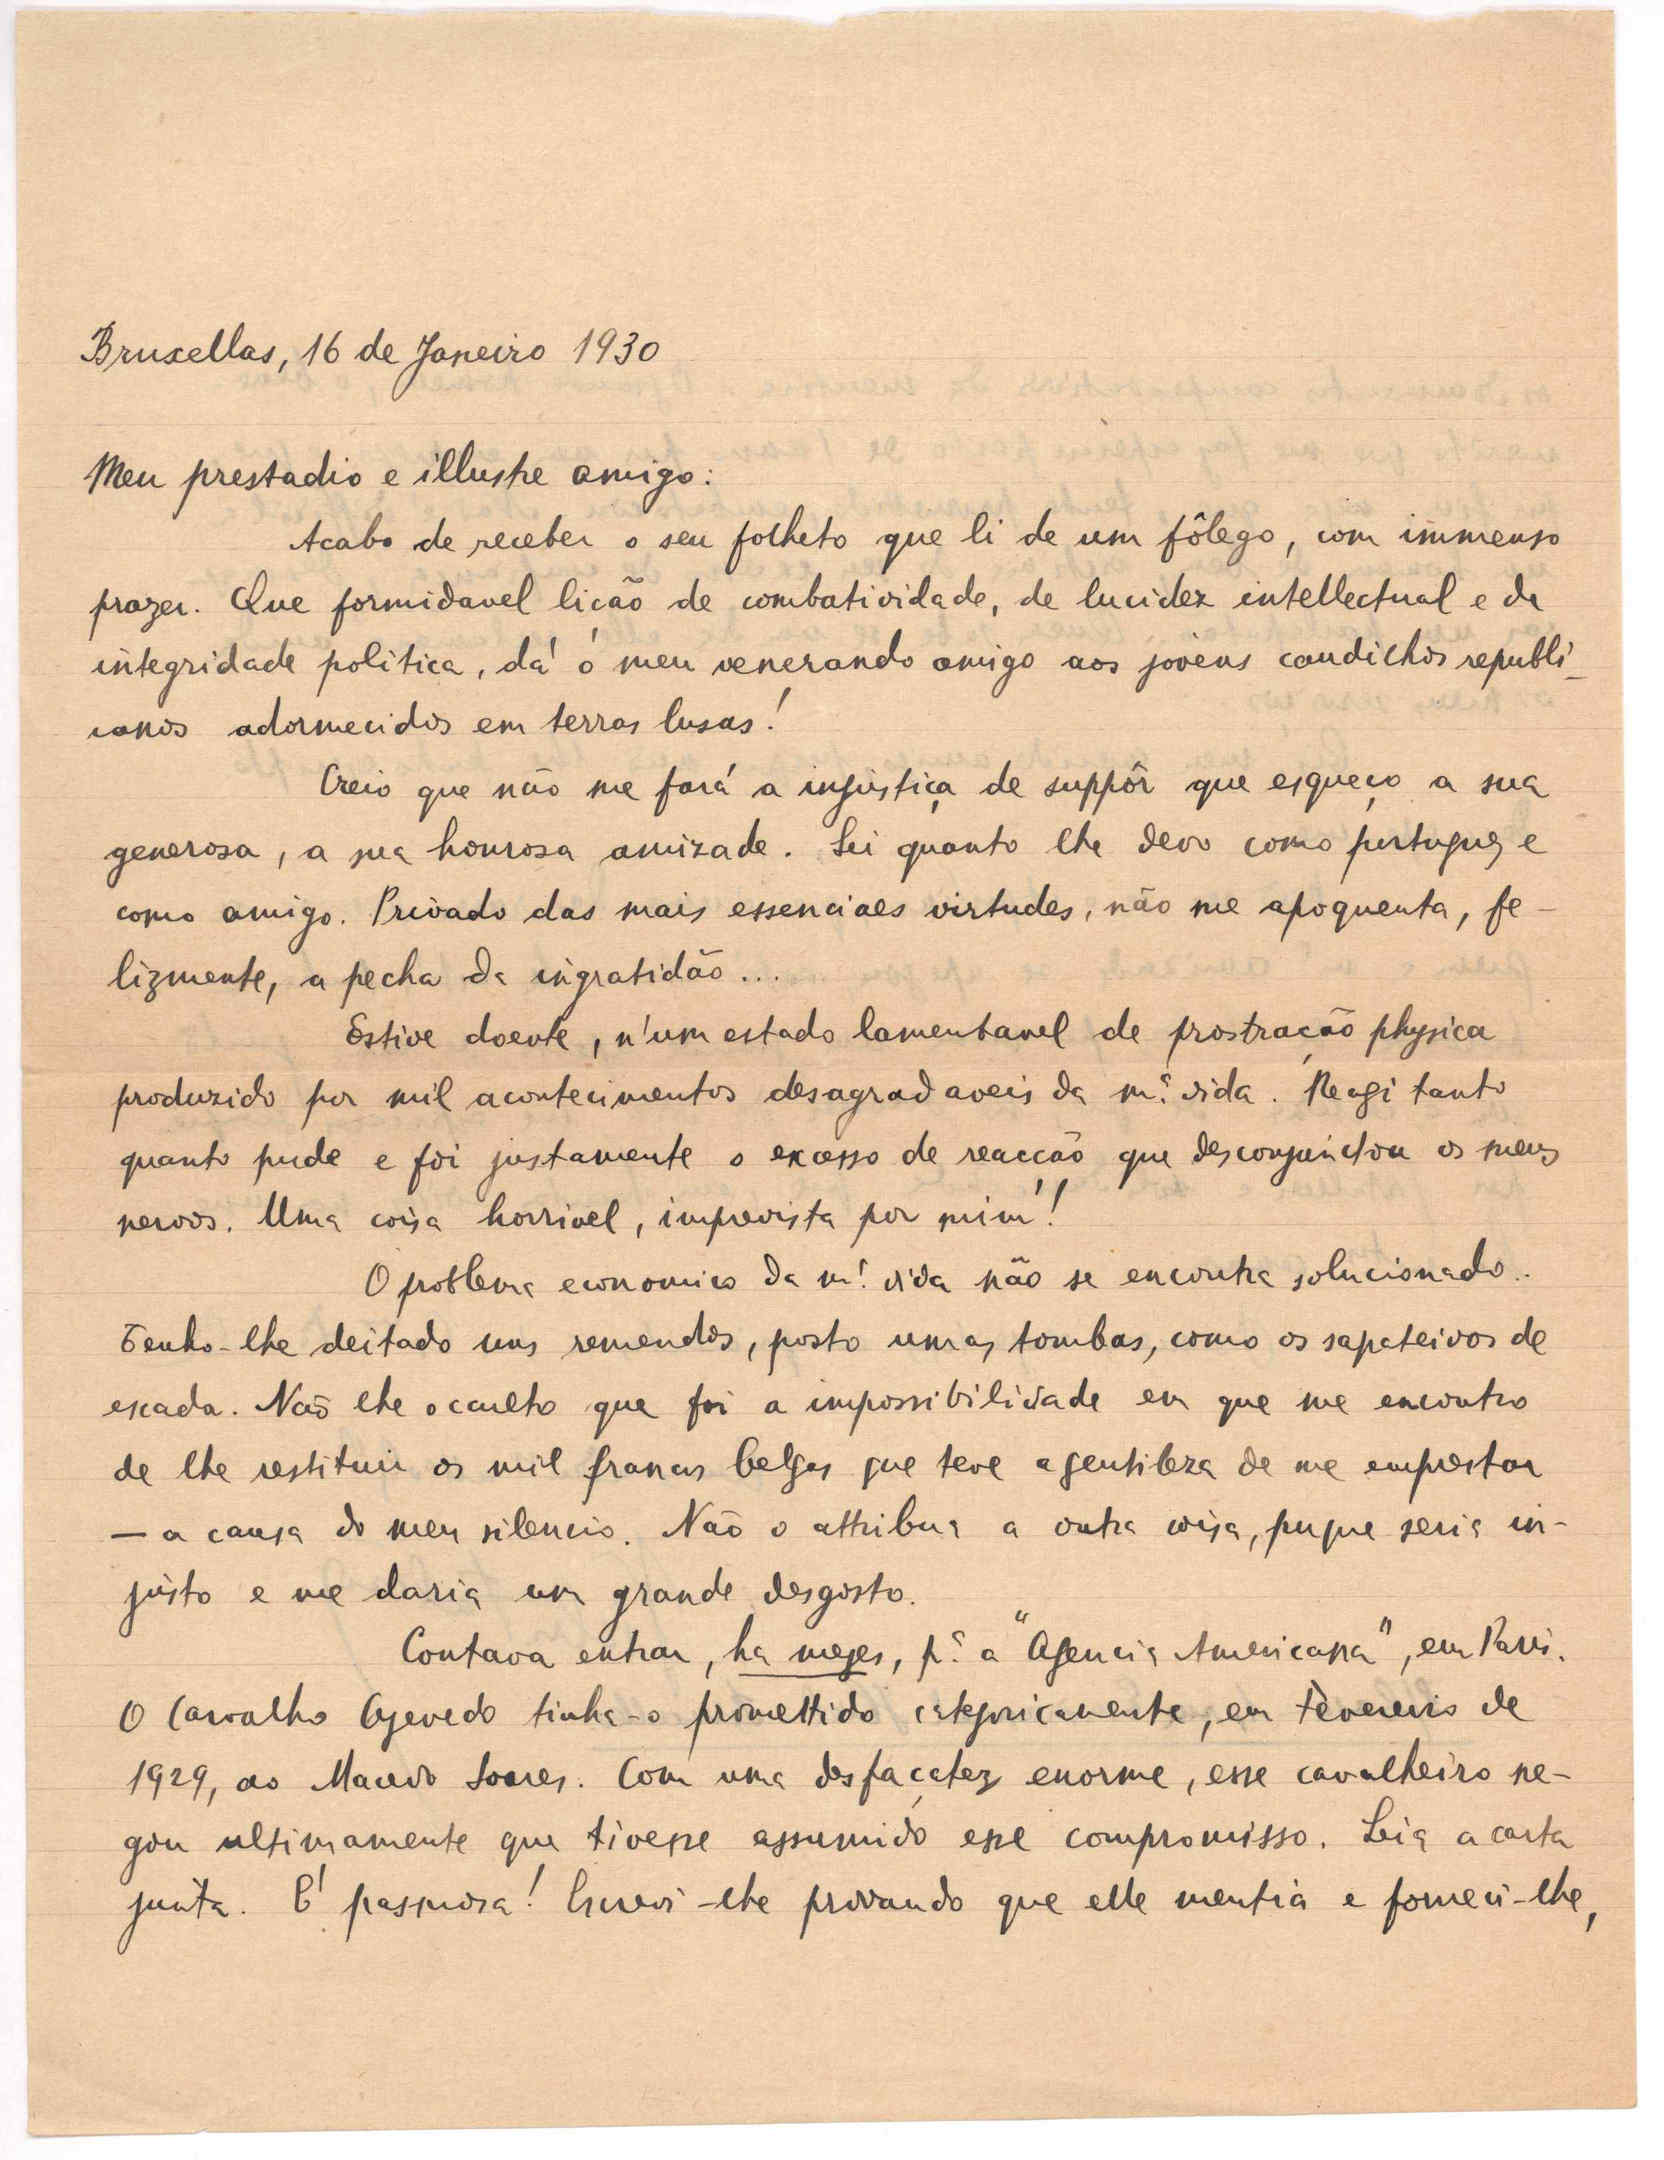 Bruxellas, 16 de Janeiro 1930
Meu prestadio e illustre amigo:
Acabo de receber o seu folheto que li de um fôlego, com immenso
prazer. Que formidavel lição de combatividade, de lucidez intellectual e de
integridade politica, dá o meu venerando amigo aos jovens caudilhos republi-
canos adormecidos em terras lusas!
Creio que não me fará a injustiça de suppôr que esqueço a sua
generosa, a sua honrosa amizade. Sei quanto lhe devo como portuguez e
como amigo. Privado das mais essenciaes virtudes, não me apoquenta, fe-
lizmente, a pecha da ingratidão...
Estive doente, n'um estado lamentavel de prostração physica
produzido por mil acontecimentos desagradaveis da m.ª vida. Reagi tanto
quanto pude e foi justamente o excesso de reacção que desconjunctou os meus
nervos. Uma coisa horrivel, imprevista por mim!
O problema economico da m.ª vida não se encontra solucionado..
Tenho-lhe deitado uns remendos, posto umas tombas, como os sapateiros de
escada. Não lhe occulto que foi a impossibilidade em que me encontro
de lhe restituir os mil francos belgas que teve a gentileza de me emprestar
— a causa do meu silencio. Não o attribua a outra coisa, porque seria in-
justo e me daria um grande desgosto.
Contava entrar, ha mezes, p.ª a "Agencia Americana", em Paris.
O Carvalho Azevedo tinha-o promettido categoricamente, em Fevereiro de
1929, ao Macedo Soares. Com uma desfaçatez enorme, esse cavalheiro ne-
gou ultimamente que tivesse assumido esse compromisso. Leia a carta
junta. É pasmosa! Escrevi-lhe provando que elle mentia e forneci-lhe,